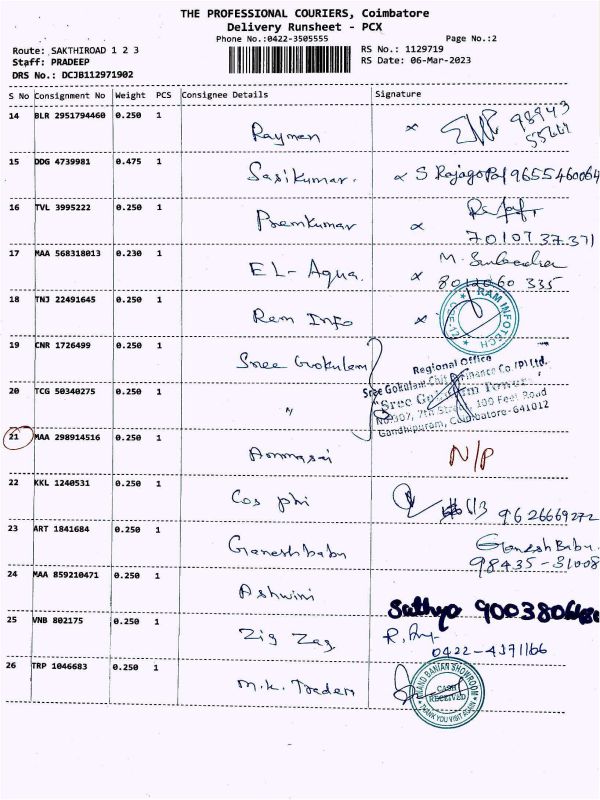 THE PROFESSIONAL COURIERS, Coimbatore
Delivery Runsheet - PCX
Phone No.:0422-3505555
Page No.:2
Route: SAKTHIROAD 1 2 3
RS No.: 1129719
Staff: PRADEEP
RS Date: 06-Mar-2023
DRS No.: DCJB112971902
S No Consignment No Weight PCS Consignee Details Signature
14 BLR 2951794460 0.250 1 Raymen × 98943
15 DDG 4739981 0.475 1 Sasikumar. × S Rajagopal 9655460064
16 TVL 3995222 0.250 1 Premkumar ×
7010737371
17 MAA 568318013 0.230 1 EL-Aqua. × M.
335
18 TNJ 22491645 0.250 1 Ram Info × RAM INFOTECH
19 CNR 1726499 0.250 1 Sree Gokulam
Regional Office
Sree Gokulam Chit & Finance Co.(P) Ltd.
20 TCG 50340275 0.250 1 〃 "Sree Gokulam Tower"
No:307, 7th Street, 100 Feet Road
Gandhipuram, Coimbatore-641012
21 MAA 298914516 0.250 1 Ammasai N/P
22 KKL 1240531 0.250 1 Cos phi 9626669272
23 ART 1841684 0.250 1 Ganeshbabu Ganesh Babu
98435-31008
24 MAA 859210471 0.250 1 Ashwini
Sathya
25 VNB 802175 0.250 1 Zig Zag
0422-4371166
26 TRP 1046683 0.250 1 M.K. Traders
ANAND BANIAN SHOWROOM
CASH RECEIVED
THANK YOU VISIT AGAIN